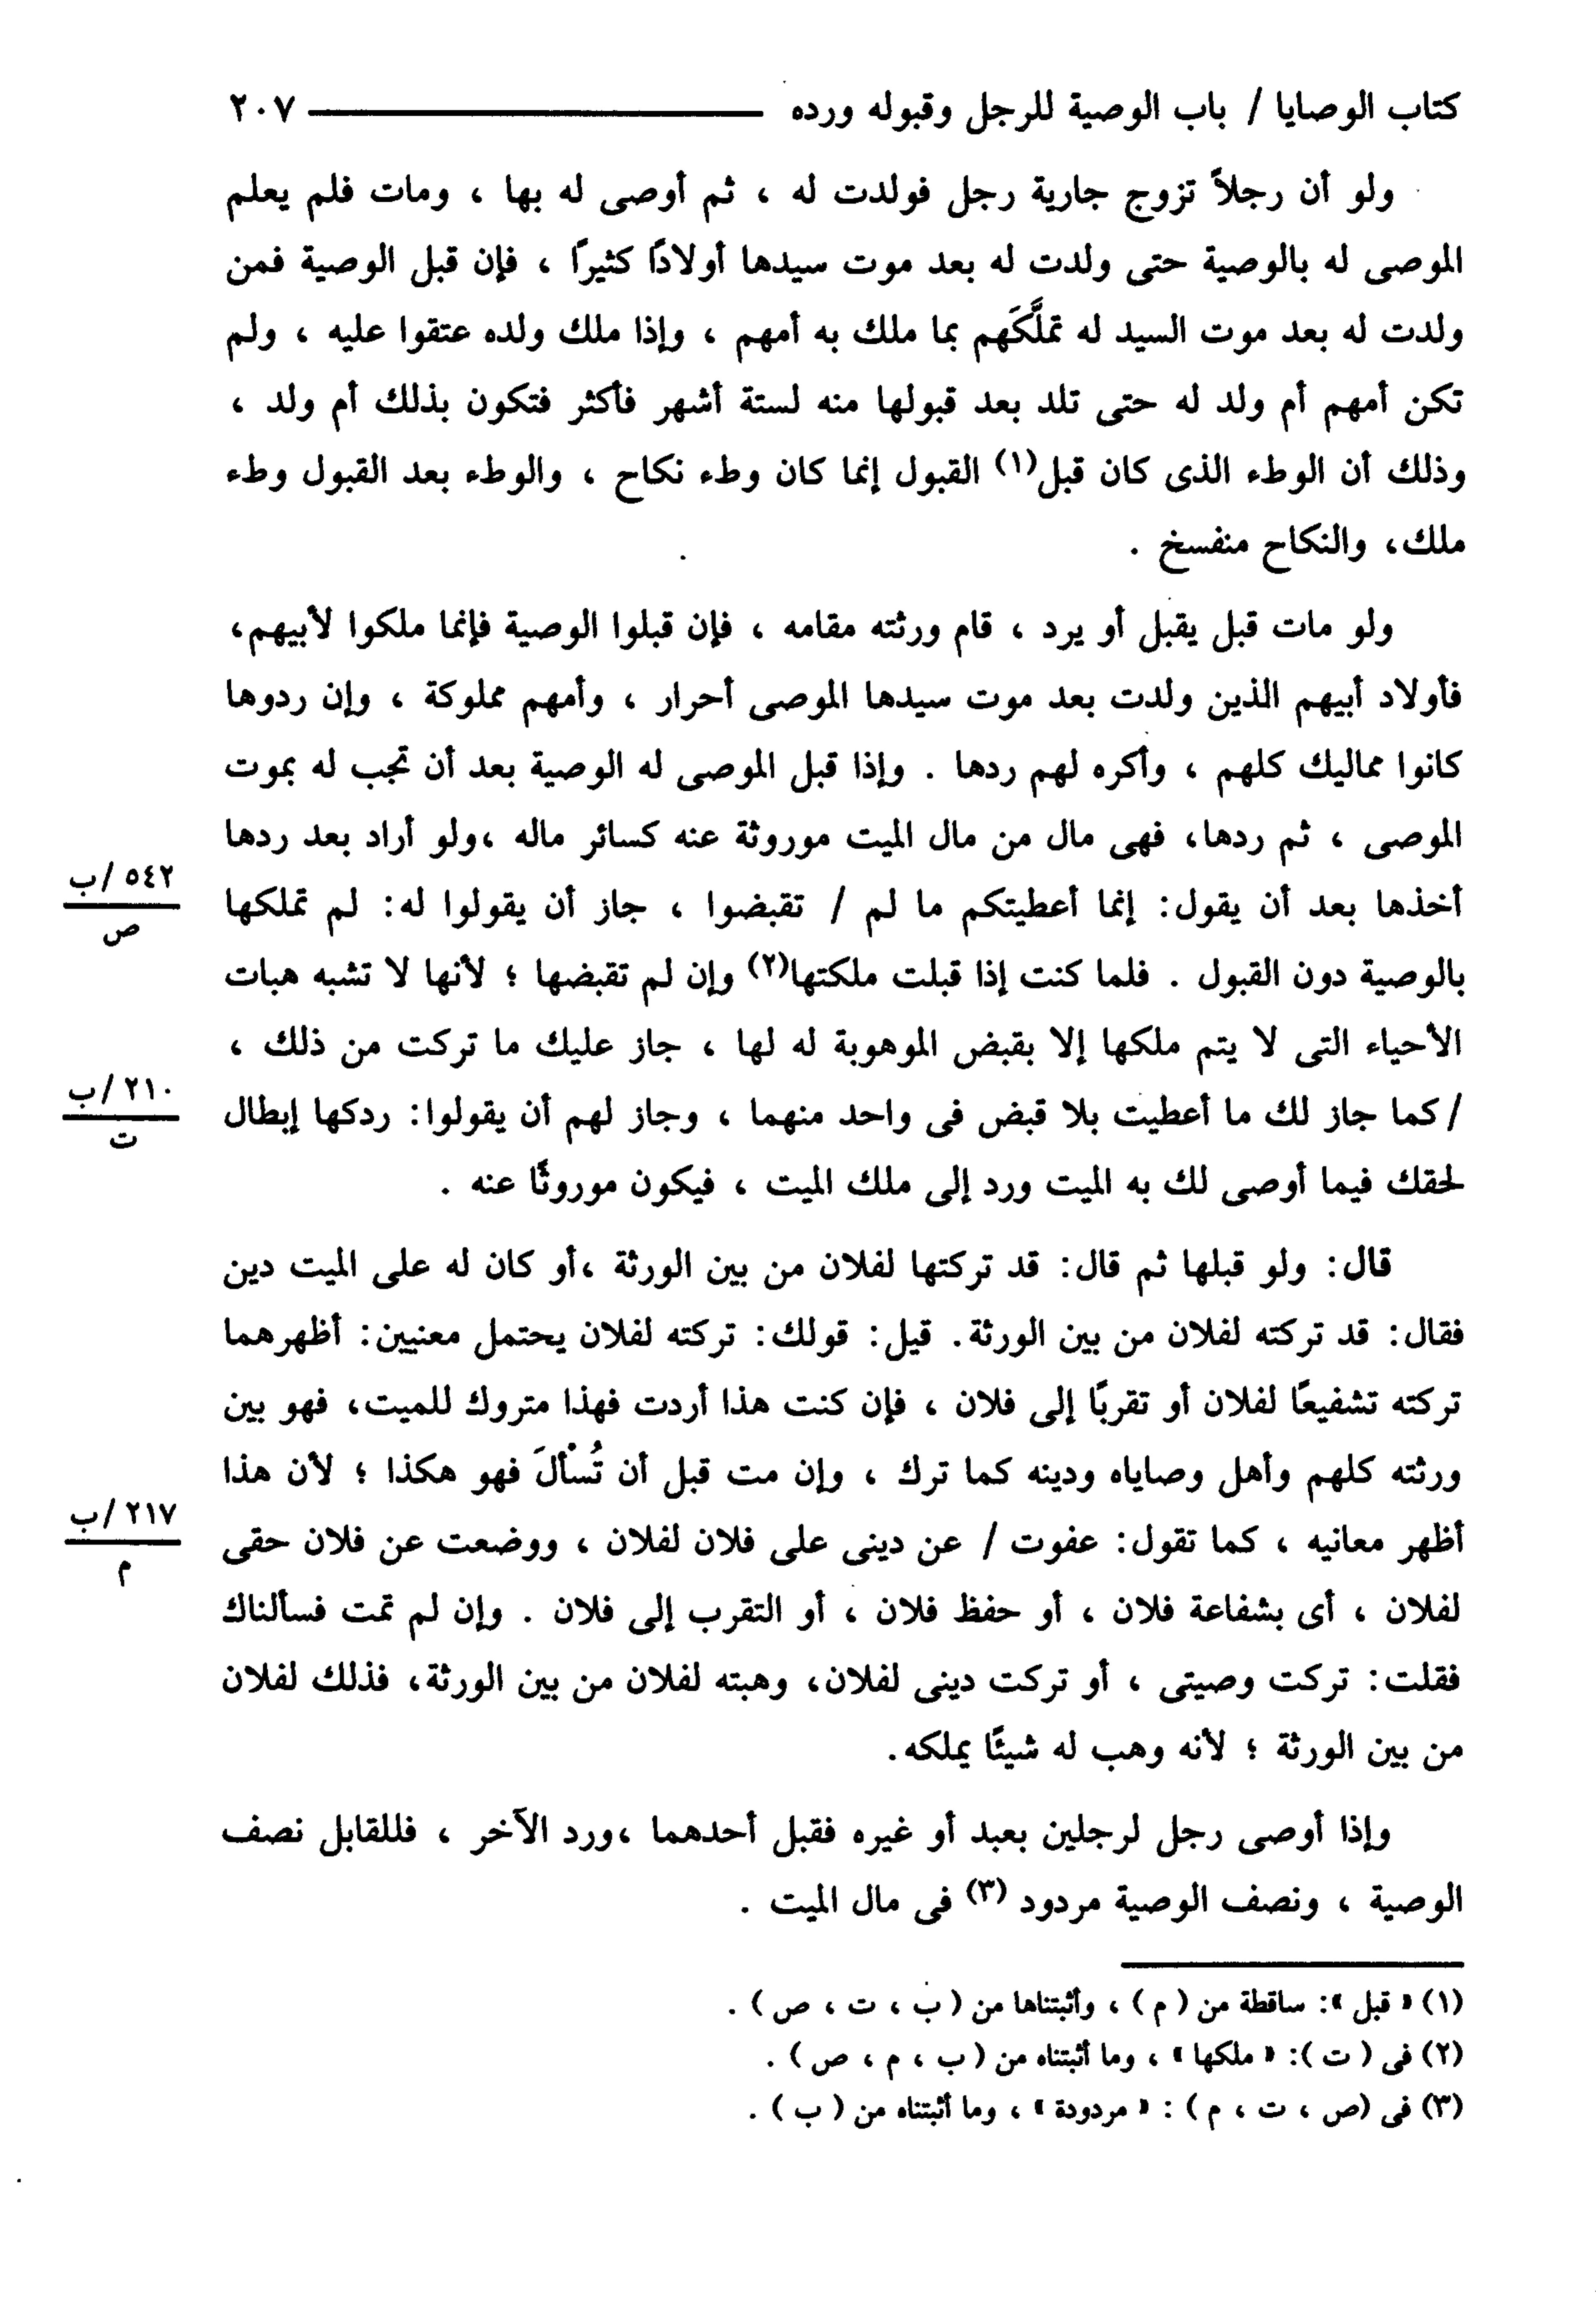 كتاب الوصايا / باب الوصية للرجل وقبوله ورده ـــــــــــ ٢٠٧
ولو أن رجلاً تزوج جارية رجل فولدت له ، ثم أوصى له بها ، ومات فلم يعلم
الموصى له بالوصية حتى ولدت له بعد موت سيدها أولادًا كثيرًا ، فإن قبل الوصية فمن
ولدت له بعد موت السيد له تملَّكَهم بما ملك به أمهم ، وإذا ملك ولده عتقوا عليه ، ولم
تكن أمهم أم ولد له حتى تلد بعد قبولها منه لستة أشهر فأكثر فتكون بذلك أم ولد ،
وذلك أن الوطء الذى كان قبل(١) القبول إنما كان وطء نكاح ، والوطء بعد القبول وطء
ملك، والنكاح منفسخ .
ولو مات قبل يقبل أو يرد ، قام ورثته مقامه ، فإن قبلوا الوصية فإنما ملكوا لأبيهم،
فأولاد أبيهم الذين ولدت بعد موت سيدها الموصى أحرار ، وأمهم مملوكة ، وإن ردوها
كانوا مماليك كلهم ، وأكره لهم ردها . وإذا قبل الموصى له الوصية بعد أن تجب له بموت
الموصى ، ثم ردها، فهى مال من مال الميت موروثة عنه كسائر ماله ،ولو أراد بعد ردها
٥٤٢ /ب
ص
أخذها بعد أن يقول: إنما أعطيتكم ما لم / تقبضوا ، جاز أن يقولوا له: لم تملكها
بالوصية دون القبول . فلما كنت إذا قبلت ملكتها(٢) وإن لم تقبضها ؛ لأنها لا تشبه هبات
الأحياء التى لا يتم ملكها إلا بقبض الموهوبة له لها ، جاز عليك ما تركت من ذلك ،
٢١٠ /ب
ت
/ كما جاز لك ما أعطيت بلا قبض فى واحد منهما ، وجاز لهم أن يقولوا: ردكها إبطال
لحقك فيما أوصى لك به الميت ورد إلى ملك الميت ، فيكون موروثًا عنه .
قال: ولو قبلها ثم قال: قد تركتها لفلان من بين الورثة ،أو كان له على الميت دين
فقال: قد تركته لفلان من بين الورثة. قيل: قولك: تركته لفلان يحتمل معنيين: أظهرهما
تركته تشفيعًا لفلان أو تقربًا إلى فلان ، فإن كنت هذا أردت فهذا متروك للميت، فهو بين
ورثته كلهم وأهل وصاياه ودينه كما ترك ، وإن مت قبل أن تُسْألَ فهو هكذا ؛ لأن هذا
٢١٧ /ب
م
أظهر معانيه ، كما تقول: عفوت / عن دينى على فلان لفلان ، ووضعت عن فلان حقى
لفلان ، أى بشفاعة فلان ، أو حفظ فلان ، أو التقرب إلى فلان . وإن لم تمت فسألناك
فقلت: تركت وصيتى ، أو تركت دينى لفلان، وهبته لفلان من بين الورثة، فذلك لفلان
من بين الورثة ؛ لأنه وهب له شيئًا يملكه.
وإذا أوصى رجل لرجلين بعبد أو غيره فقبل أحدهما ،ورد الآخر ، فللقابل نصف
الوصية ، ونصف الوصية مردود (٣) فى مال الميت .
(١) « قبل »: ساقطة من ( م ) ، وأثبتناها من ( ب ، ت ، ص ) .
(٢) فى ( ت ): « ملكها » ، وما أثبتناه من ( ب ، م ، ص ) .
(٣) فى (ص ، ت ، م ) : « مردودة » ، وما أثبتناه من ( ب ) .